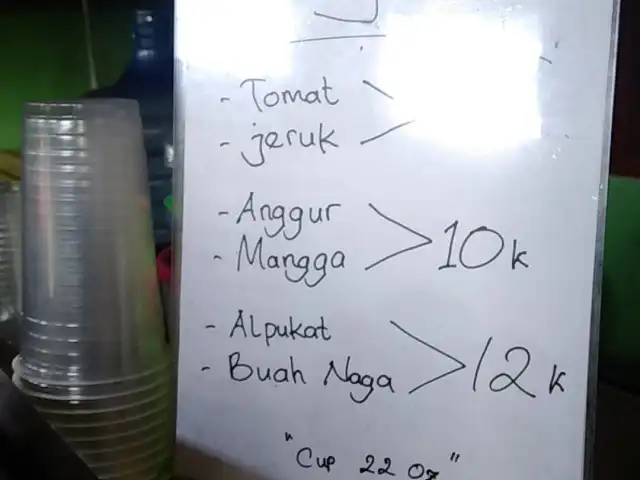 - Tomat
- jeruk
- Anggur
- Mangga
10k
- Alpukat
- Buah Naga
12k
"Cup 22 Oz"